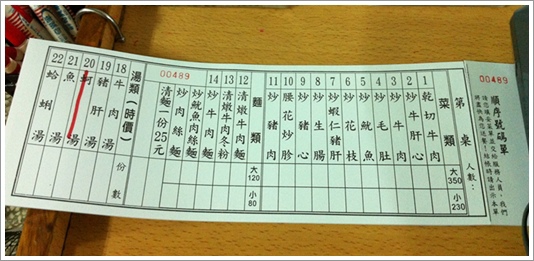 00489
順序號碼單
第 桌
人數:
菜類
大350
小230
1 乾切牛肉
2 炒牛肝心
3 炒毛肚
4 炒魷魚
5 炒花枝
炒生腸
7 炒蝦仁豬肝
9 炒豬心
10 腰花炒胗
11 炒豬肉
麵類
大120
小80
12 清燉牛肉麵
13 清燉牛肉冬粉
14 炒牛肉麵
炒魷魚肉麵
炒肉絲麵
清麵一份25元
00489
湯類(時價)
份數
18 牛肉湯
19 豬肝湯
20 蚵湯
21 魚湯
22 蛤蜊湯